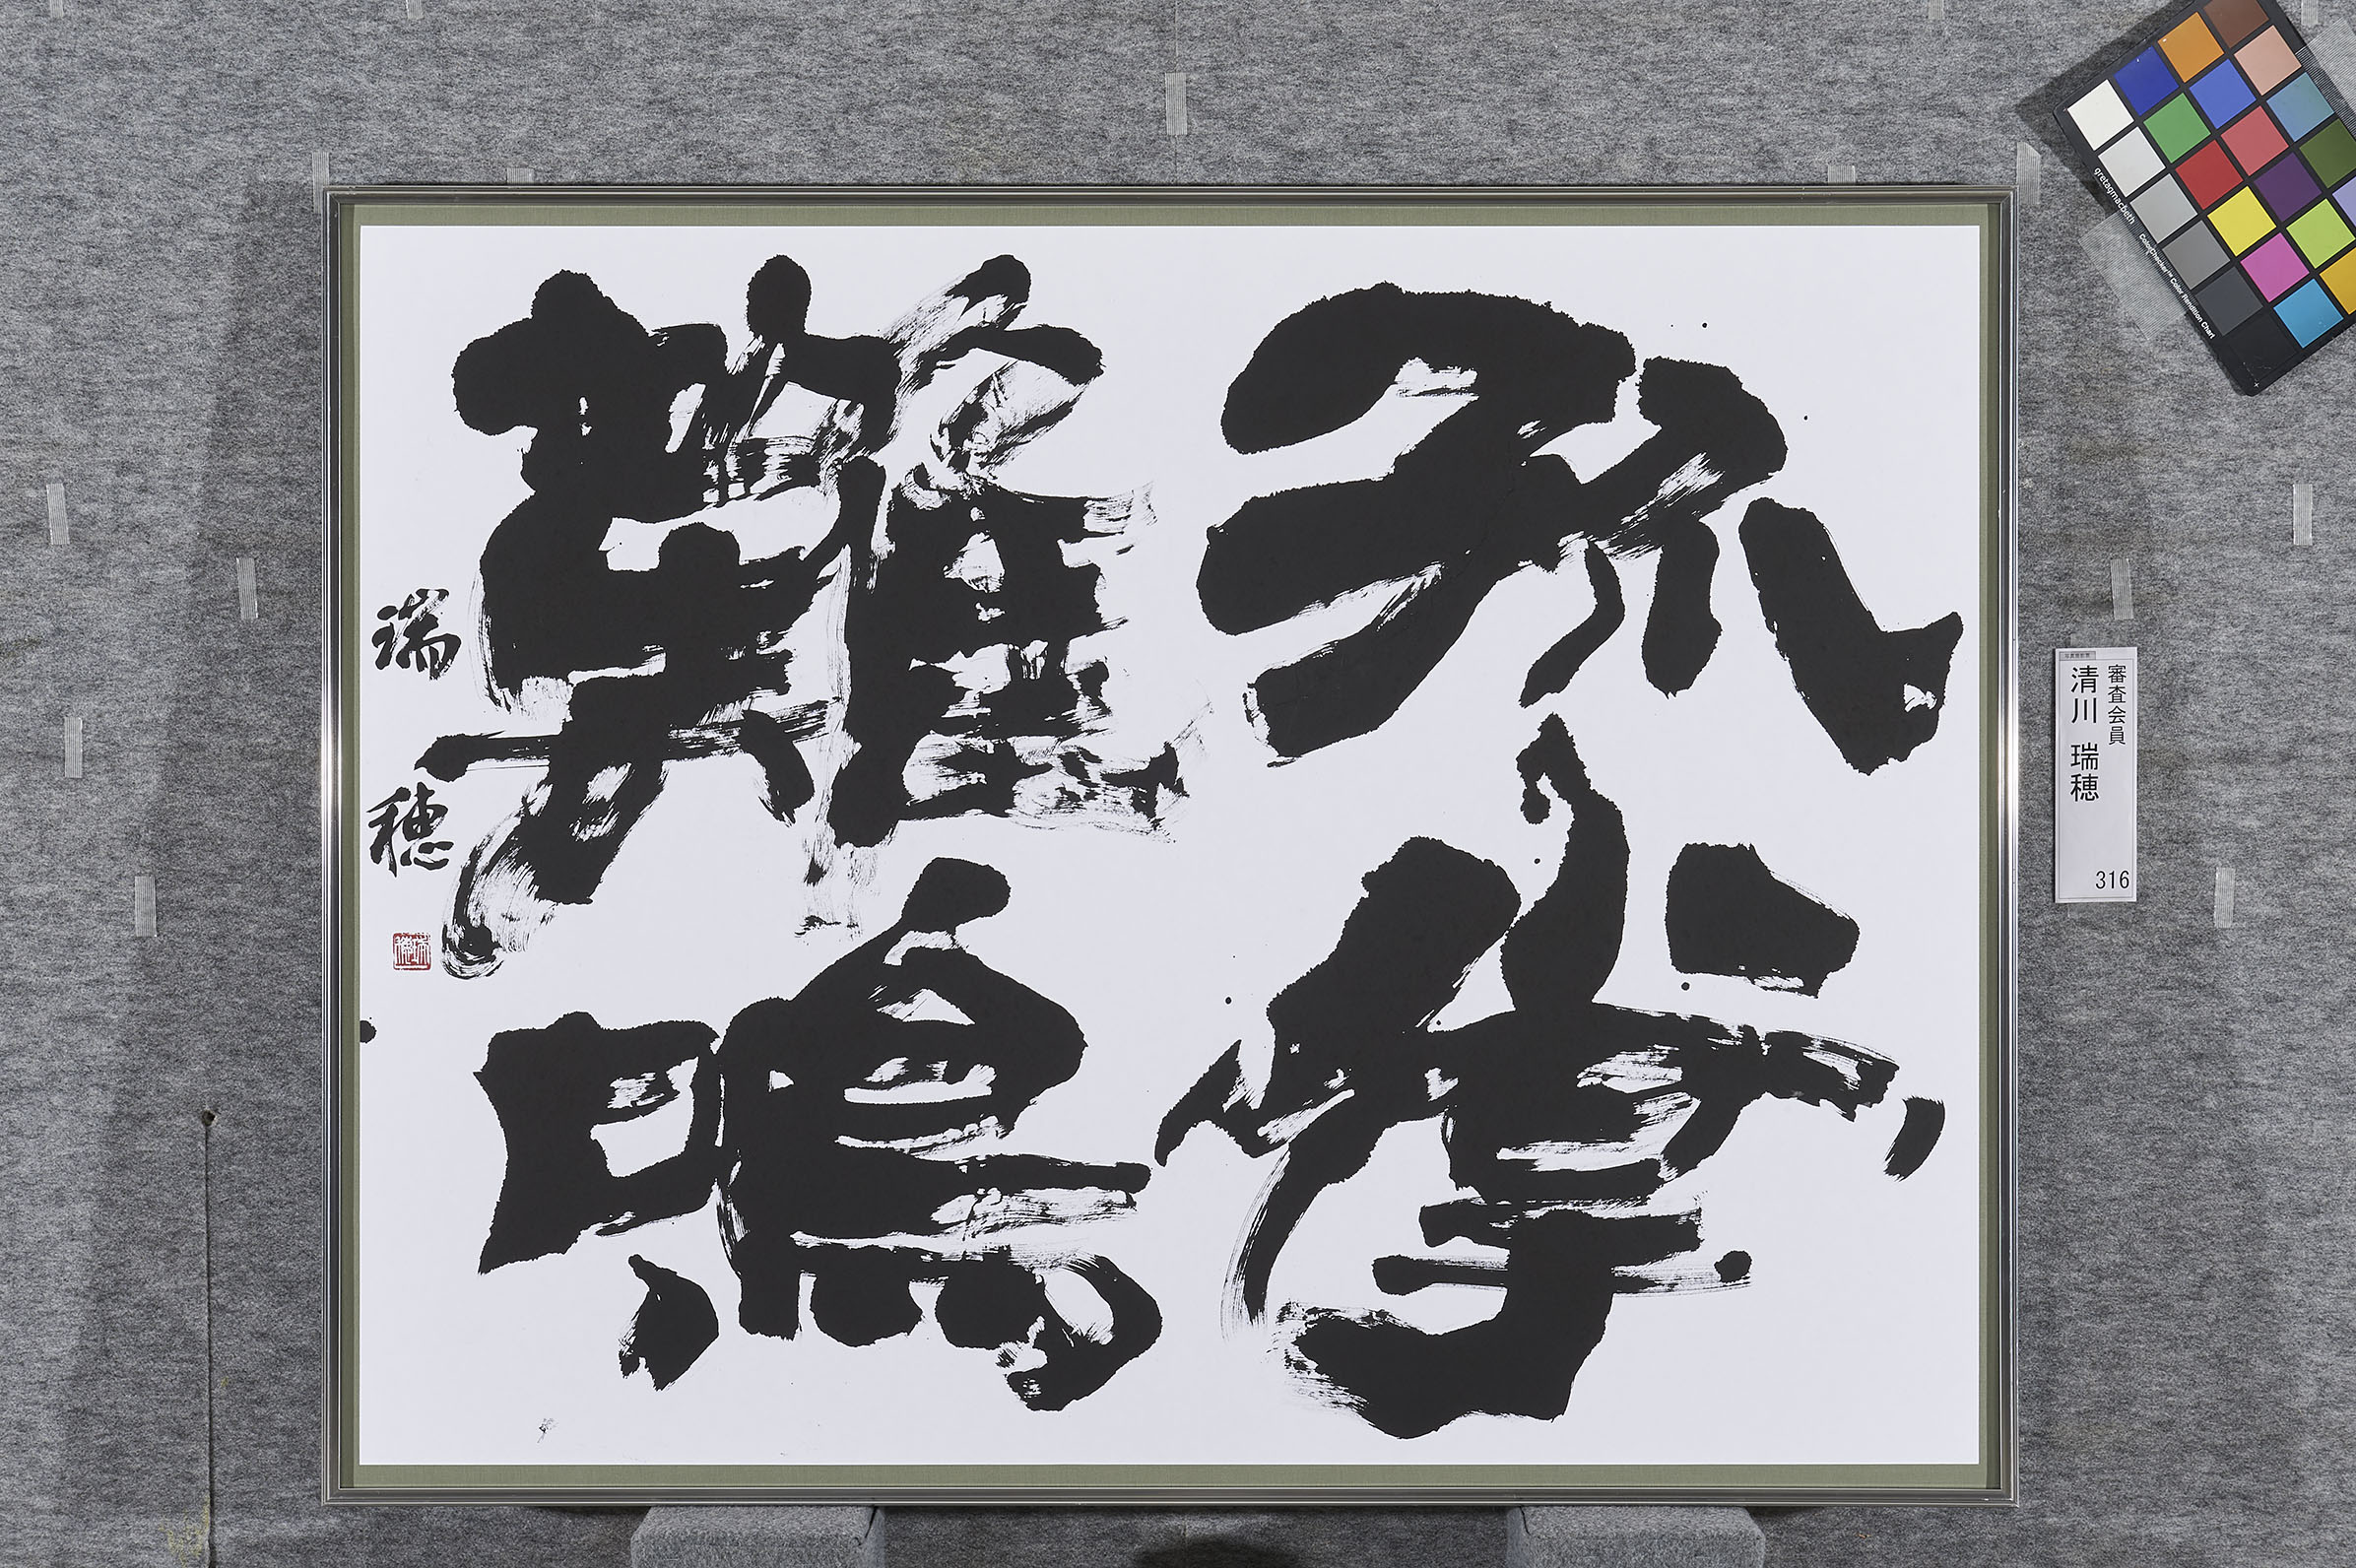 孤掌
難鳴
瑞穂
審査会員
清川 瑞穂
316
gretagmacbeth
ColorChecker™ Color Rendition Chart